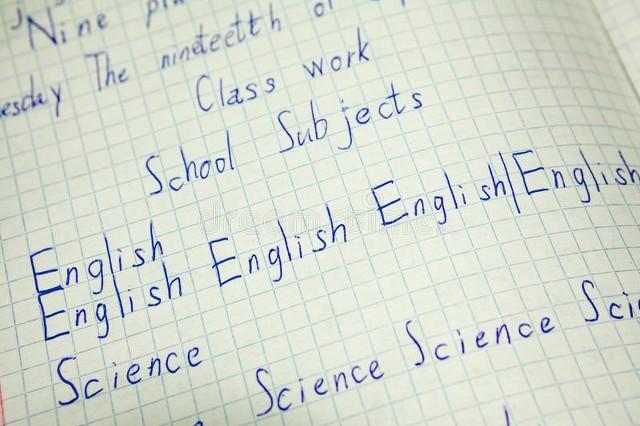 Nine
esday The nineteetth
Class work
School Subjects
English
English English English|English
Science
Science Science Sci